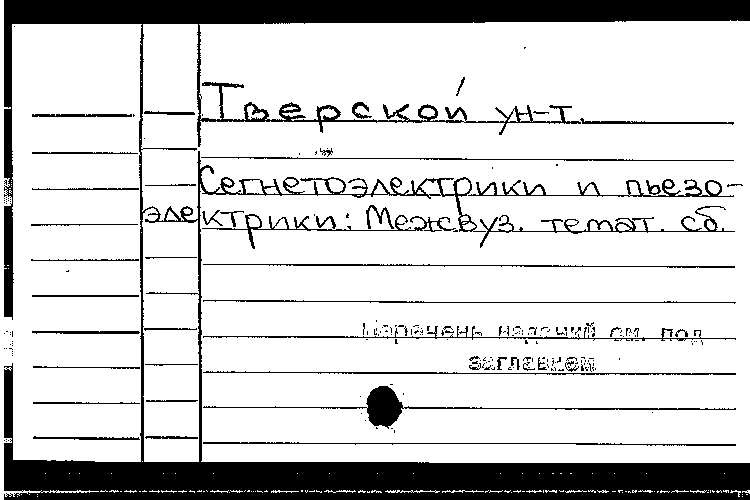 Тверской ун-т.
Сегнетоэлектрики и пьезо-
электрики: Межвуз. темат. сб.
Перечень изданий см. под
заглавием